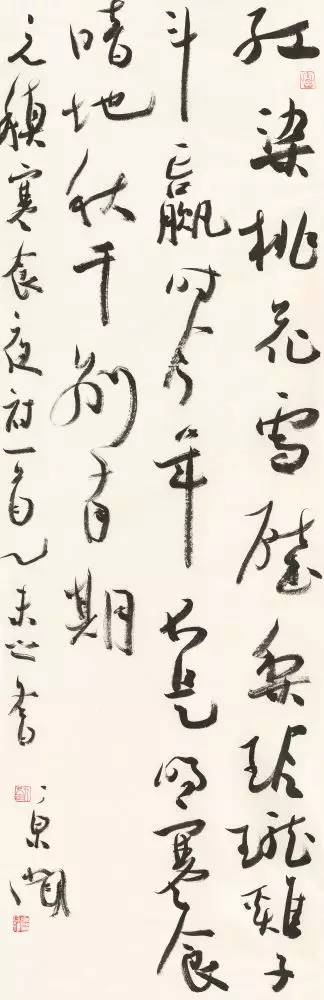 红染桃花雪壓梨玲瓏雞子
斗贏时今年不是明寒食
暗地秋千别有期
元稹寒食夜诗一首乙未之春